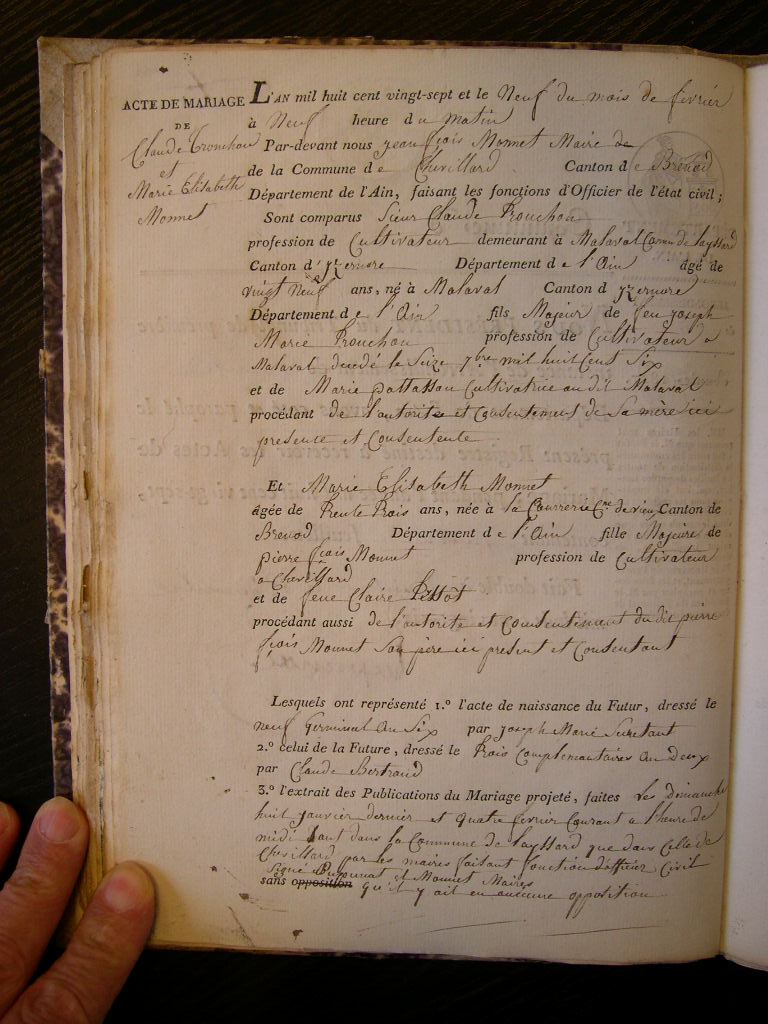 ACTE DE MARIAGE
DE
Claude Tronchon
et
Marie Elisabeth
Monnet
L'AN mil huit cent vingt-sept et le Neuf du mois de fevrier
à Neuf heure du matin
Par-devant nous jean fçois Monnet Maire de
de la Commune de Chevillard Canton de Brenod
Département de l'Ain, faisant les fonctions d'Officier de l'état civil ;
Sont comparus Sieur Claude Tronchon
profession de Cultivateur demeurant à Malaval Comn de Layssard
Canton d'yzernore Département de l'Ain âgé de
vingt Neuf ans, né à Malaval Canton d yzernore
Département de l'Ain fils Majeur de feu joseph
Marie Tronchon profession de Cultivateur a
Malaval decedé le Seize 7bre mil huit Cent Six
et de Marie Cultivatrice au dit Malaval
procédant de l'autorite et Consentement de Sa mère ici
presente et Consentente
Et Marie Elisabeth Monnet
âgée de Trente Trois ans, née à la Courrerie Cne de vieu Canton de
Brenod Département de l'Ain fille Majeure de
pierre fçois Monnet profession de Cultivateur
a Chevillard
et de feue Claire
procédant aussi de l'autorite et Consentiment du dit pierre
fçois Monnet Son père ici present et Consentant
Lesquels ont représenté 1.º l'acte de naissance du Futur, dressé le
neuf Germinal An Six par joseph Marie
2.º celui de la Future, dressé le Trois Complementaires an Deux
par Claude Bertrand
3.º l'extrait des Publications du Mariage projeté, faites les dimanche
huit janvier dernier et quatre fevrier Courant a l'heure de
midi tant dans la Commune de Layssard que dans Celle de
Chevillard par les maires faisant fonction d'officier Civil
Signé et Monnet Maires
sans opposition qu'il y ait eu aucune opposition